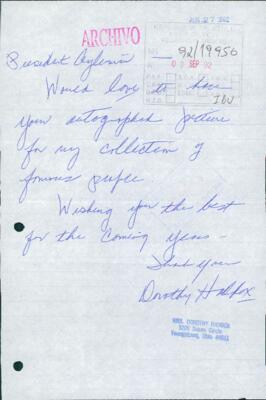 AUG 27 1992
ARCHIVO
92/19956
03 SEP 92
President Aylwin
Would love to have
your autographed picture
for my collection of
famous people
Wishing you the best
for the coming years -
Thank you
Dorothy Halfox
MRS. DOROTHY
Circle
Youngstown, Ohio